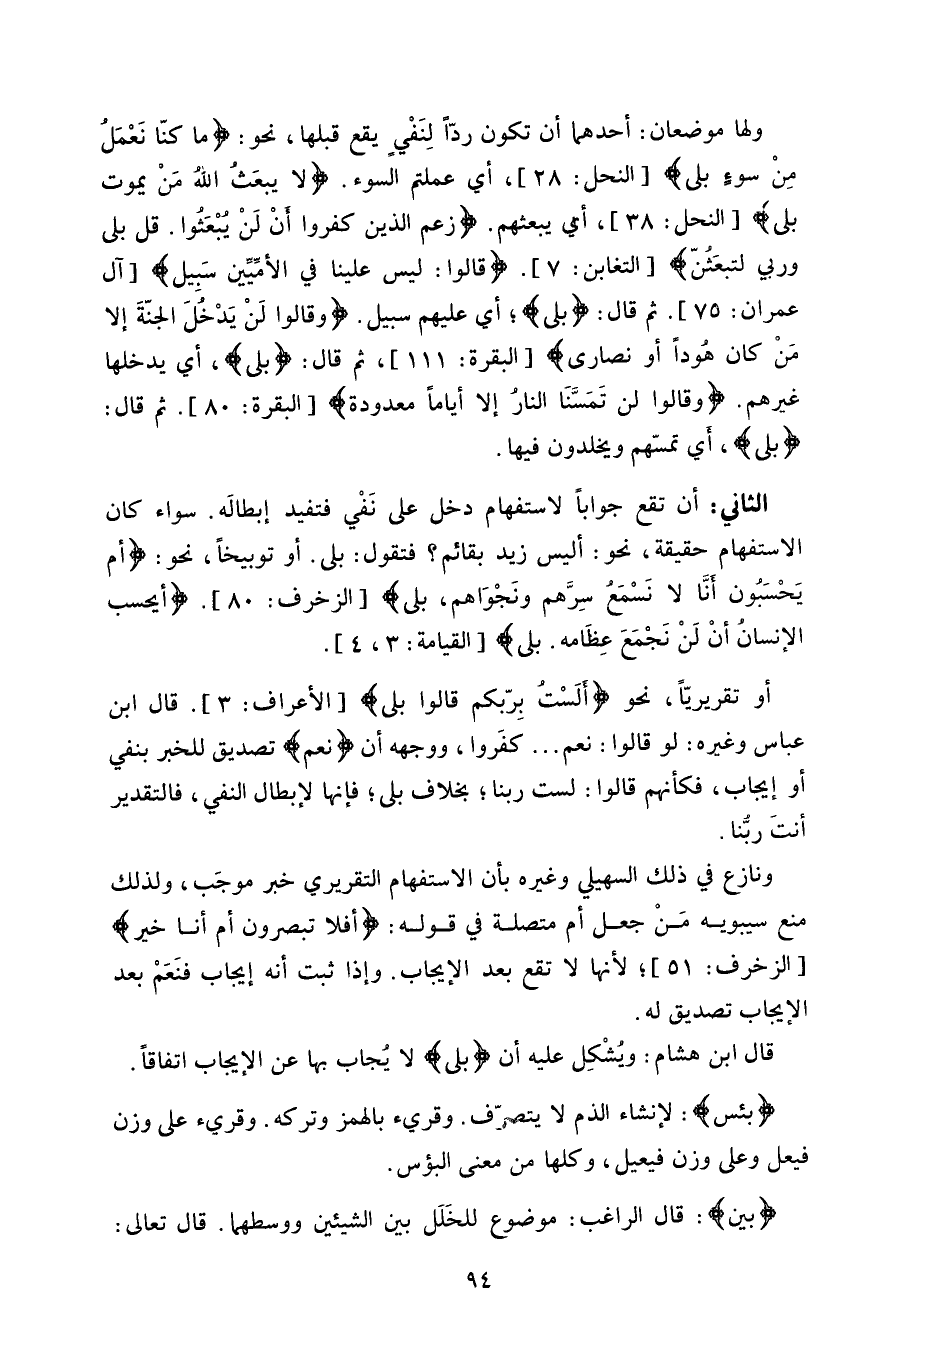 ولها موضعان: أحدهما أن تكون ردّاً لِنَفْيٍ يقع قبلها، نحو: ﴿ما كنّا نَعْمَلُ
مِنْ سوءٍ بلى﴾ [النحل: ٢٨]، أي عملتم السوء. ﴿لا يبعَثُ اللهُ مَنْ يموت
بلى﴾ [النحل: ٣٨]، أي يبعثهم. ﴿زعم الذين كفروا أَنْ لَنْ يُبْعَثُوا. قل بلى
وربي لتبعَثُنّ﴾ [التغابن: ٧]. ﴿قالوا: ليس علينا في الأمِّيِّين سَبِيل﴾ [آل
عمران: ٧٥]. ثم قال: ﴿بلى﴾؛ أي عليهم سبيل. ﴿وقالوا لَنْ يَدْخُلَ الجنّةَ إلا
مَنْ كان هُوداً أو نصارى﴾ [البقرة: ١١١]، ثم قال: ﴿بلى﴾، أي يدخلها
غيرهم. ﴿وقالوا لن تَمَسَّنَا النارُ إلا أياماً معدودة﴾ [البقرة: ٨٠]. ثم قال:
﴿بلى﴾، أَي تمسّهم ويخلدون فيها.
الثاني: أن تقع جواباً لاستفهام دخل على نَفْي فتفيد إبطالَه. سواء كان
الاستفهام حقيقة، نحو: أليس زيد بقائم؟ فتقول: بلى. أو توبيخاً، نحو: ﴿أم
يَحْسَبُون أَنَّا لا نَسْمَعُ سِرَّهم ونَجْوَاهم، بلى﴾ [الزخرف: ٨٠]. ﴿أيحسب
الإنسانُ أنْ لَنْ نَجْمَعَ عِظَامه. بلى﴾ [القيامة: ٣، ٤].
أو تقريريّاً، نحو ﴿أَلَسْتُ بِربّكم قالوا بلى﴾ [الأعراف: ٣]. قال ابن
عباس وغيره: لو قالوا: نعم... كفَروا، ووجهه أن ﴿نعم﴾ تصديق للخبر بنفي
أو إيجاب، فكأنهم قالوا: لست ربنا؛ بخلاف بلى؛ فإنها لإبطال النفي، فالتقدير
أنتَ ربُّنا.
ونازع في ذلك السهيلي وغيره بأن الاستفهام التقريري خبر موجَب، ولذلك
منع سيبويه مَنْ جعل أم متصلة في قوله: ﴿أفلا تبصرون أم أنا خير﴾
[الزخرف: ٥١]؛ لأنها لا تقع بعد الإيجاب. وإذا ثبت أنه إيجاب فنَعَمْ بعد
الإيجاب تصديق له.
قال ابن هشام: ويُشْكِل عليه أن ﴿بلى﴾ لا يُجاب بها عن الإيجاب اتفاقاً.
﴿بئس﴾: لإنشاء الذم لا يتصرّف. وقريء بالهمز وتركه. وقريء على وزن
فيعل وعلى وزن فيعيل، وكلها من معنى البؤس.
﴿بين﴾: قال الراغب: موضوع للخَلَل بين الشيئين ووسطهما. قال تعالى:
٩٤